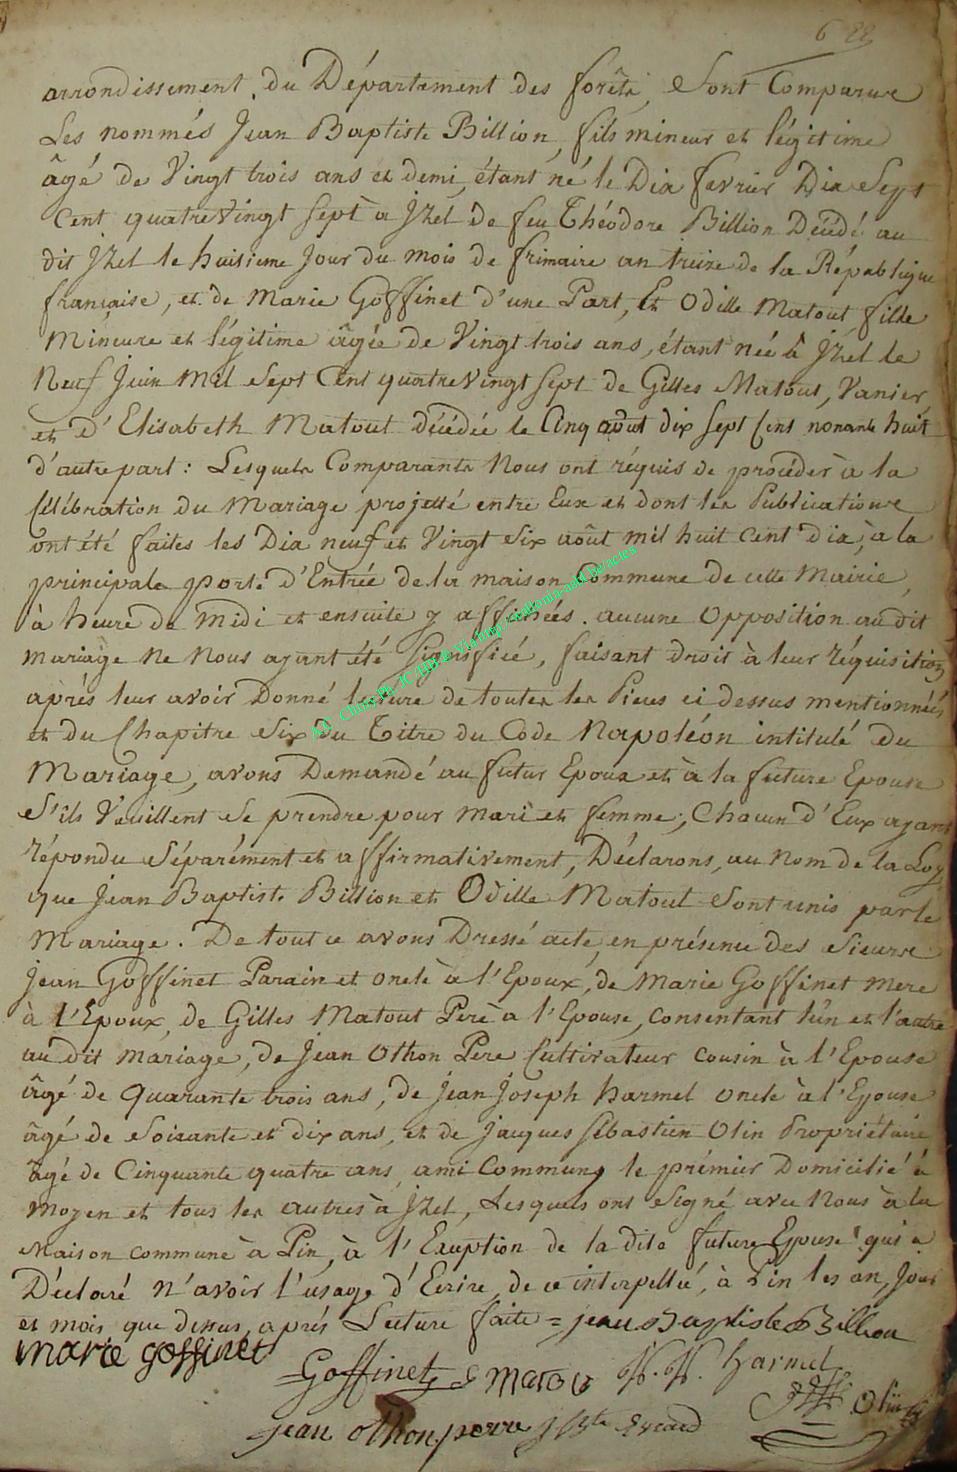 6 22
arrondissement du Département des forêts, Sont Comparus
Les nommés Jean Baptiste Billion, fils mineur et légitime
âgé de Vingt trois ans et demi, étant né le Dix fevrier Dix Sept
Cent quatre Vingt Sept à Jzel de feu Théodore Billion Décédé au
dit Jzel le huitieme Jour du mois de frimaire an treize de la République
française, et de Marie Goffinet d'une Part, Et Odille Matout fille
Mineure et légitime âgée de Vingt trois ans, étant née à Jzel le
Neuf Juin Mil Sept Cent quatre Vingt Sept de Gilles Matout, Vanier,
et d'Elisabeth Matout décédée le Cinq août dix Sept Cent nonante huit
d'autre part : Lesquels Comparants Nous ont réquis de procéder à la
Célébration du Mariage projetté entre Eux et dont les Publications
ont été faites les Dix neuf et Vingt Six août mil huit Cent dix, à la
principale porte d'Entrée de la maison Commune de cette Mairie,
à heure de Midi et ensuite y affichées. aucune Opposition au dit
mariage Ne Nous ayant été Signifiée, faisant droit à leur réquisition
après leur avoir Donné lecture de toutes les Pieces ci dessus mentionnées
et du Chapitre Six du Titre du Code Napoléon intitulé du
Mariage, avons Demandé au futur Epoux et à la future Epouse
S'ils Veuillent Se prendre pour Mari et femme; Chacun d'Eux ayant
répondu Séparément et affirmativement, Déclarons, au Nom de la Loy
que Jean Baptiste Billion et Odille Matout Sont unis par le
Mariage. De tout ce avons Dressé acte, en présence des Sieurs
Jean Goffinet Parain et oncle à l'Epoux, de Marie Goffinet mere
à l'Epoux, de Gilles Matout Père à l'Epouse, Consentant l'un et l'autre
au dit mariage, de Jean Othon Pere Cultivateur Cousin à l'Epouse
âgé de Quarante trois ans, de Jean Joseph Harmel oncle à l'Epouse
âgé de Soixante et dix ans, et de Jacques Sébastien Olin Propriétaire
âgé de Cinquante quatre ans, ami Commun, le prémier Domicilié à
Moyen et tous les autres à Jzel, Lesquels ont Signé avec Nous à la
Maison commune à Pin, à l'Exception de la dite future Epouse qui a
Déclaré n'avoir l'usage d'Ecrire, de ce interpellée, à Pin les an, Jour
et mois que dessus, après Lecture faite = jean Baptiste Billion
marie goffinet
Goffinet G Matou H. H. Harmel
Olin
jean othon perre